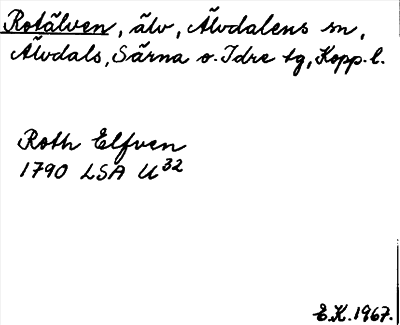 Rotälven, älv, Älvdalens sn,
Älvdals, Särna o. Idre tg, Kopp. l.
Roth Elfven
1790 LSA U32
E.K. 1967.